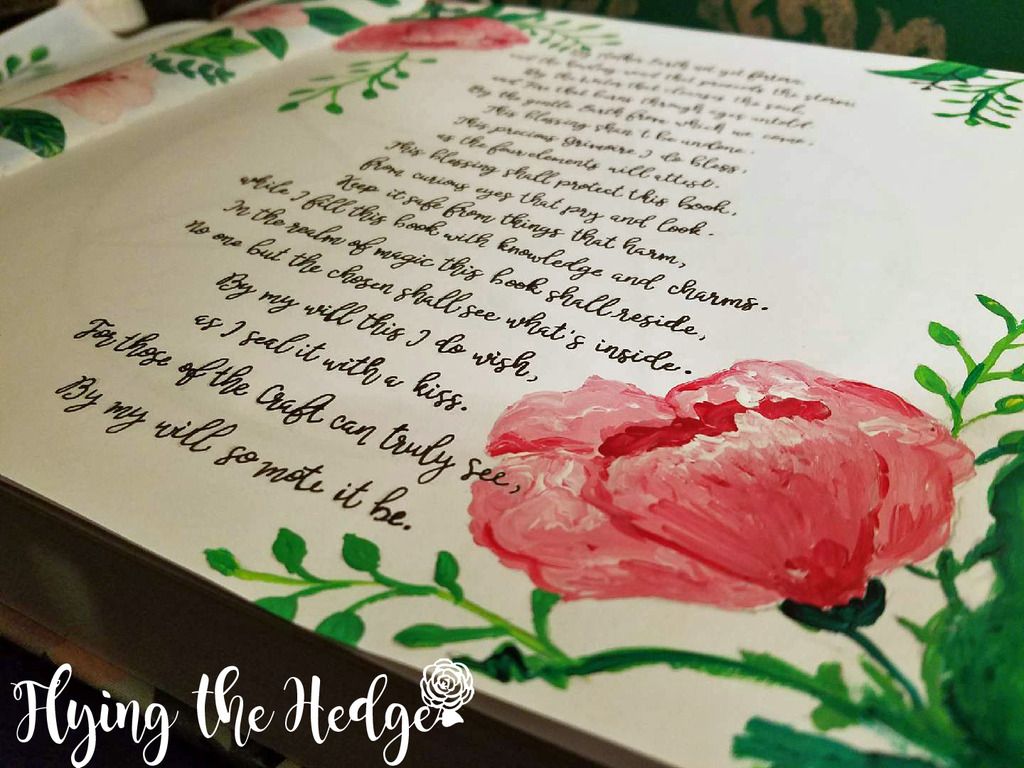 By Mother Earth not yet before,
and the howling wind that precedes the storm
By the water that cleanses the soul,
and Fire that burns through eyes untold.
By the gentle Earth from which we come,
This blessing shan't be undone.
This precious Grimoire I do bless,
as the four elements will attest.
This blessing shall protect this book,
from curious eyes that pry and look.
Keep it safe from things that harm,
while I fill this book with knowledge and charms.
In the realm of magic this book shall reside,
No one but the chosen shall see what's inside.
By my will this I do wish,
as I seal it with a kiss.
For those of the Craft can truly see,
By my will so mote it be.
Flying the Hedge